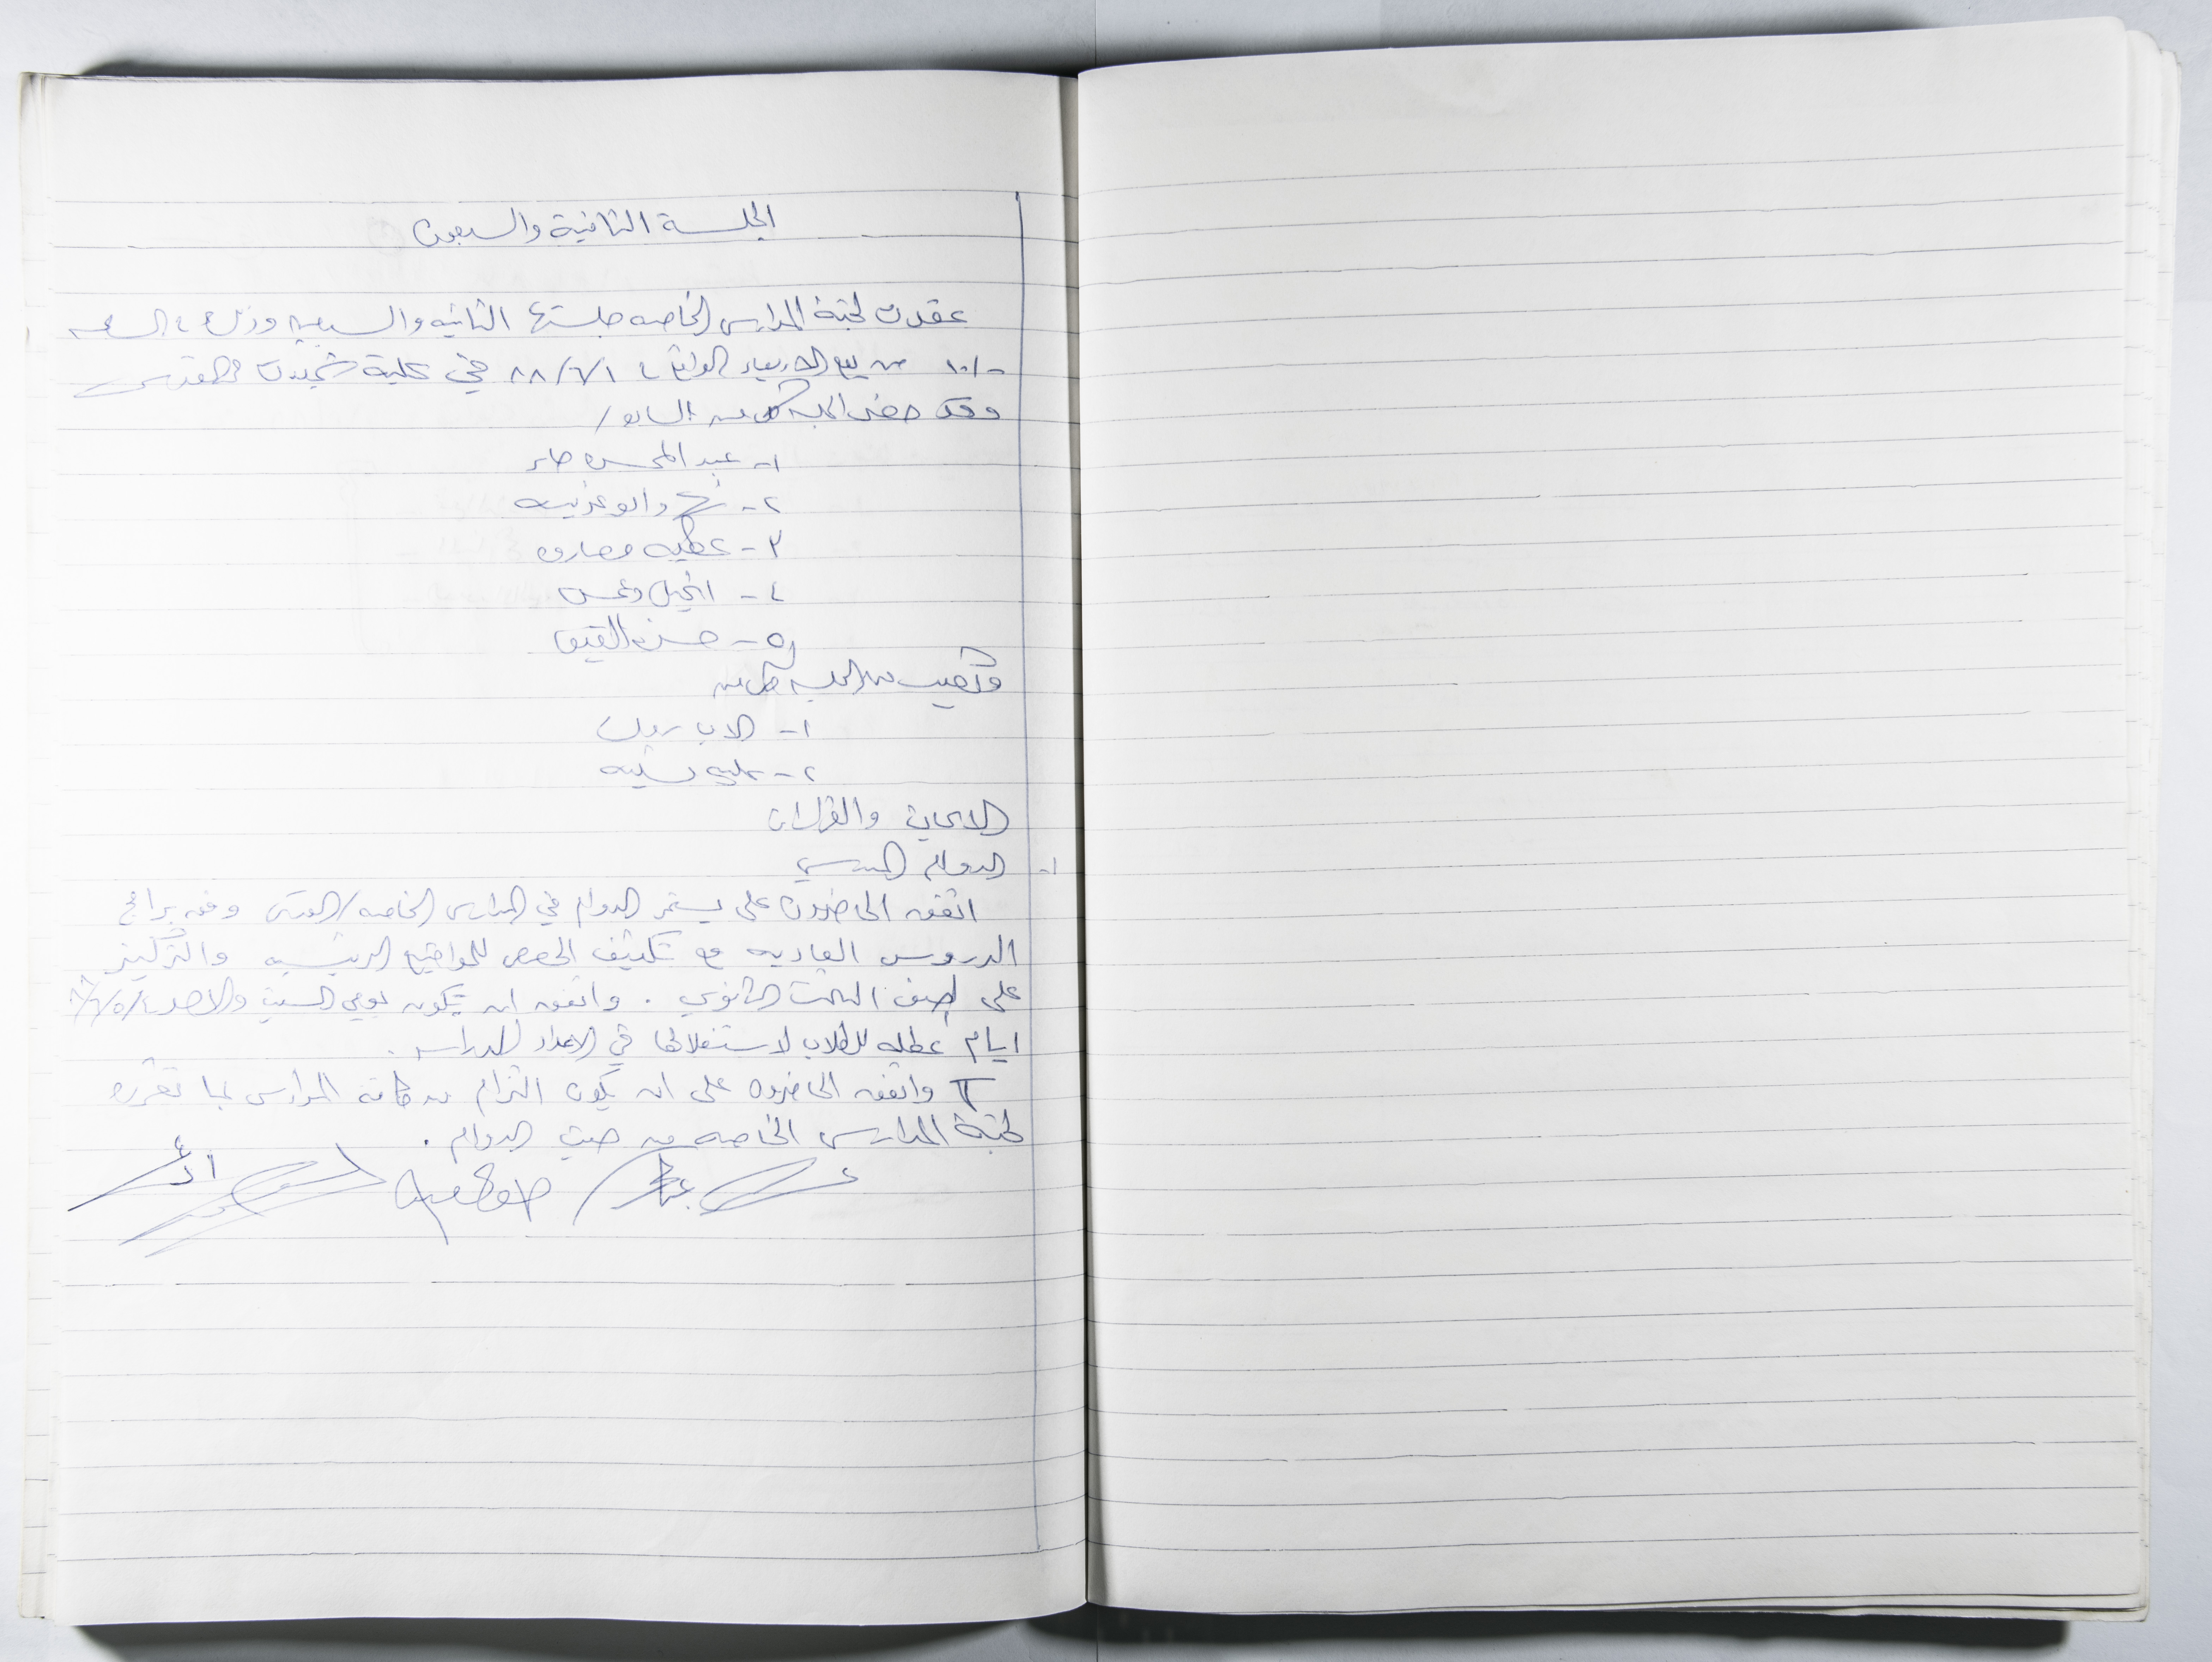 الجلسة الثانية والسبعون
عقدت لجنة المدارس الخاصه جلستها الثانيه والسبعين وذلك بالساعه
١٠/٠ من يوم الاربعاء الواقع في ٨٨/٦/١ في كلية شميدت القدس
وقد حضر الجلسه كل من الساده /
١- عبد المحسن جابر
٢- نهى ابو غزيه
٣- عطيه مصاروه
٤- انجيل دعمس
٥- حسن القيق
وتغيب عن الجلسه كل من
١- الاب رويك
٢- نسيبه
الابحاث والقرارات
١- الدوام المدرسي
اتفق الحاضرون على يستمر الدوام في المدارس الخاصه / القدس وفق برامج
الدروس العاديه مع تكثيف الحصص للمواضيع الرئيسيه والتركيز
على صف الثالث الثانوي . واتفق ان يكون يومي السبت والاحد ٤/٥/٦/٨٨
ايام عطله للطلاب لاستغلالها في الاعداد للدراسه .
واتفق الحاضرون على ان يكون التزام من كافة المدارس بما تقرره
لجنة المدارس الخاصه من حيث الدوام .